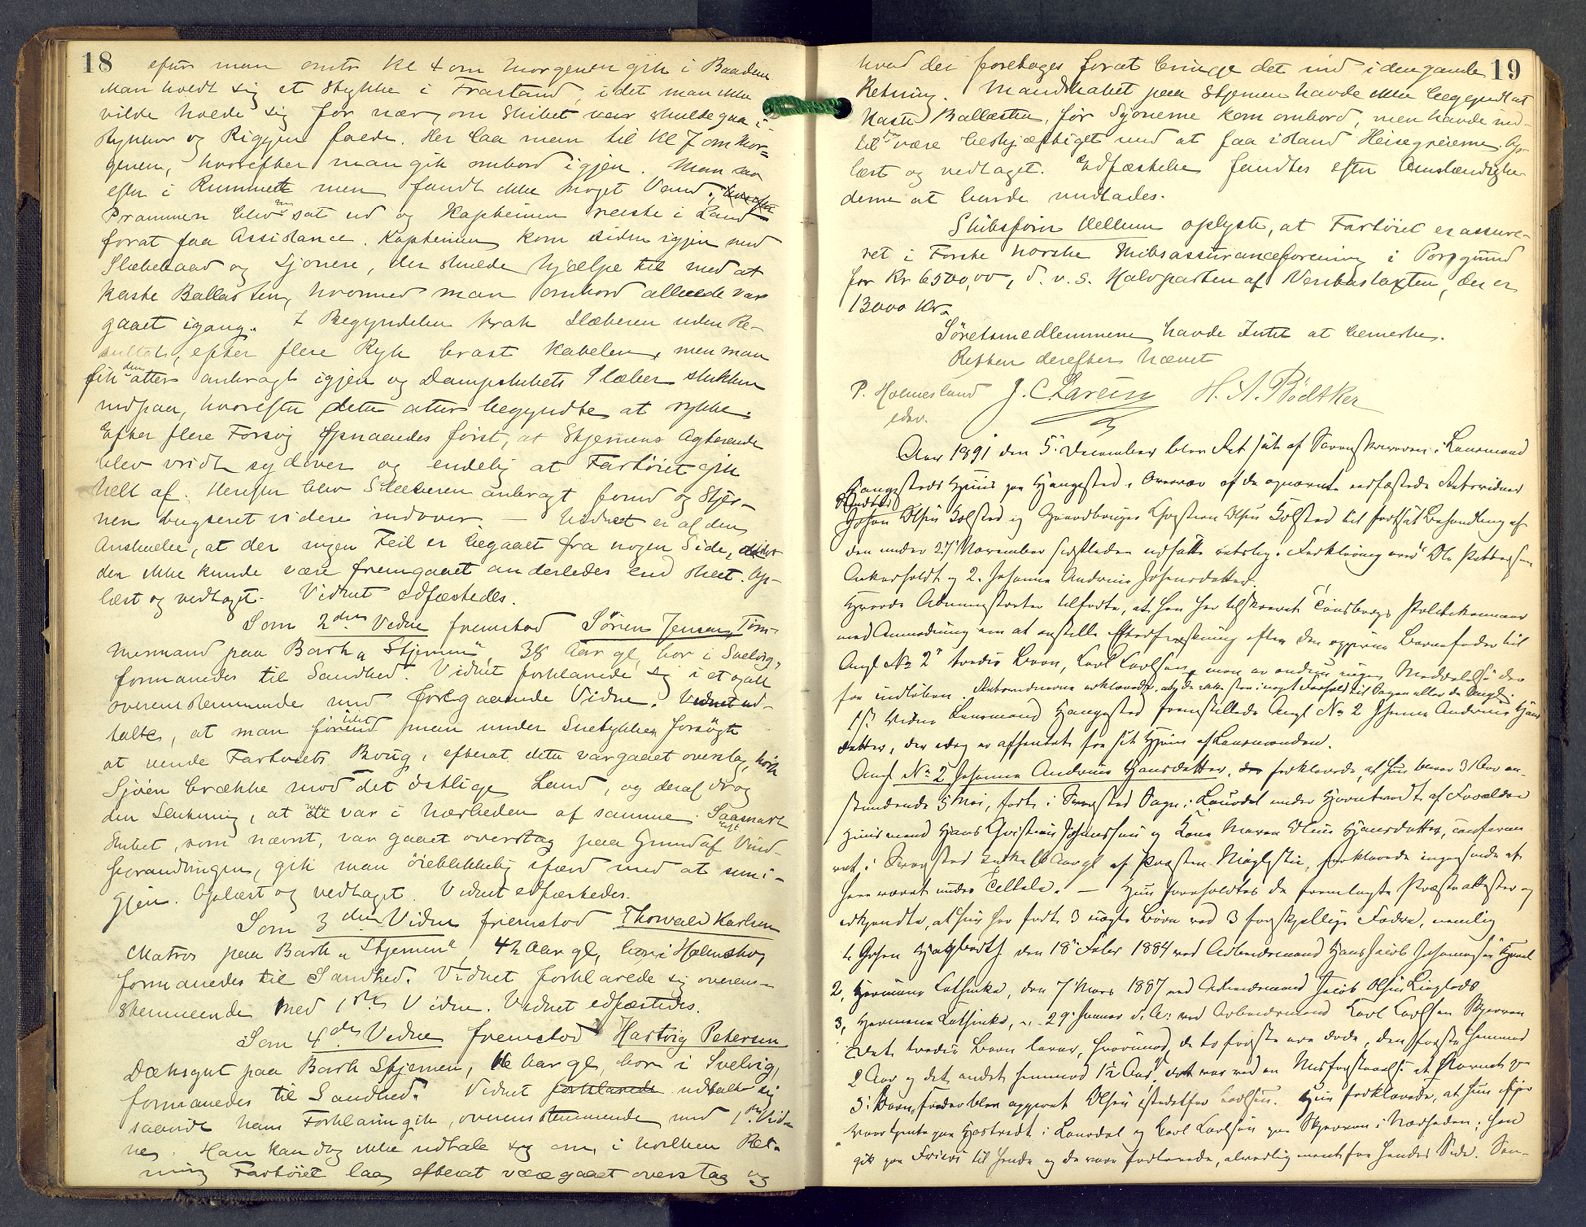 18
efter man omtr Kl 4 om Morgenen gik i Baaden
Man holdt sig et Stykke i Frastand, idet man ikke
vilde holde sig for nær, om Skibet var skulde gaa i
Stykker og Riggen falde. Her laa man til Kl 7 om Mor-
genen, hvorefter man gik ombord igjen. Man saa
efter i Rummet men fandt ikke noget Vand,
Prammen blev nu sat ud og Kapteinen reiste i Land
forat faa Assistance. Kapteinen kom siden igjen med
Slæbebaad og Sjouere, der skulde hjælpe til med at
kaste Ballasten, hvormed man ombord allerede var
gaaet igang. I Begyndelsen trak Slæberen uden Re-
sultat, efter flere Ryk brast Kabelen, men man
fik den atter anbragt igjen og Dampskibets Slæber
indpaa, hvorefter dette atter begyndte at rykke.
Efter flere Forsøg opnaaedes først, at Stjernens Agterende
blev vridt sydover og endelig at Fartøiet gik
helt af. Herefter blev Slæberen anbragt forud og Stjer-
nen bugseret videre indover. — Vidnet er af den
Anskuelse, at der ingen Feil er begaaet fra nogen Side,
der ikke kunde være fremgaaet anderledes end skeet. Op-
læst og vedtaget. Vidnet edfæstedes.
Som 2den Vidne fremstod Søren Jensen, Tøm-
mermand paa Bark "Stjernen", 38 Aar gl, bor i Svelvig,
formanedes til Sandhed. Vidnet forklarede sig i et og alt
overensstemmende med foregaaende Vidne. Vidnet ud-
talte, at man forend man under Snetykken forsøgte
at vende Fartøiets Boug, efterat dette var gaaet overstag, hørte
Sjøen brække mod det østlige Land, og deraf drog
den Slutning, at de var i Nærheden af samme. Saasnart
Skibet, som nævnt, var gaaet overstag paa Grund af Vind-
forandringen, gik man øieblikkelig ifærd med at
gjen. Oplæst og vedtaget. Vidnet edfæstedes.
Som 3die Vidne fremstod Thorvald Karlsen
Matros paa Bark "Stjernen", 42 Aar gl, bor i Holmsbo,
formanedes til Sandhed. Vidnet forklarede sig overens-
stemmende med 1ste Vidne. Vidnet edfæstedes.
Som 4de Vidne fremstod Hartvig Petersen
Dæksgut paa Bark Stjernen, 16 Aar gl, bor i Svelvig,
formanedes til Sandhed. Vidnet forklarede udtalte sig
saavidt hans Forklaring gik, overensstemmende med 1ste Vid-
ne. Han kan dog ikke udtale sig om, i hvilken Ret-
ning Fartøiet laa efterat være gaaet overstag og
19
hvad der foretoges forat bringe det ind i den gamle
Retning. Mandskabet paa Stjernen havde ikke begyndt at
kaste Ballasten, før Sjouerne kom ombord, men havde ind-
til da være beskjæftiget med at faa istand Heisegreierne. Op-
læst og vedtaget. Edfæstelse fandtes efter Omstændighe-
derne at burde undlades.
Skibsfører Vellum oplyste, at Fartøiet er assure-
ret i Første norske Skibsassuranceforening i Porsgrund
for Kr 6500,00, d. v. s. Halvparten af Verditaxten, der er
13000 Kr.
Søretsmedlemmerne havde Intet at bemerke.
Retten derefter hævet
P. Holmesland J. C. Larsen H. A. Bødtker
edsv.
Aar 1891 den 5. December blev Ret sat af Sorenskriveren i Lensmand
Hjangsteds Huus paa Hjangsted i Overvær af de opnævnte edfæstede Retsvidner
Johan Olsen Holsted og Gaardbruger Christian Olsen Holsted til fortsat Behandling af
den under 27 November sidstleden udsatte retslige Forklaring mod Ole Pettersen
Ankersholdt og 2. Johanne Andrine Johnsdatter.
Herreds Administrator tilførte, at han har tilskrevet Tønsbergs Politikammer
med Anmodning om at anstille Efterforskning efter den opgivne Barnefader til
Angl No 2s tredie Barn, Carl Carlsen, men at endnu ingen Meddelelse der-
fra indløben.
1st Vidne Lensmand Hjangsted fremstillede Angl No 2 Johanne Andrine Hans-
datter, der idag er afhentet fra sit Hjem af Lensmanden.
Angl. No 2 Johanne Andrine Hansdatter, forklarede, at hun bliver 31 Aar an-
stundende 5 Mai, født i Svarstad Sogn i Laurdal under Hjerntvedt af Forældre
Huusmand Hans Christian Johannesen og Kone Maren Olea Hansdatter, confirme-
ret i Svarstad Kirke 16 Aar gl af Præsten, forklarede ingensinde at
have været under Tiltale. — Hun foreholdtes de fremlagte Præsteattester og
vedkjendte, at hun har født 3 uægte Børn ved 3 forskjellige Fædre, nemlig
1, den 18. Febr 1884 ved Arbeidsmand Hans Jacob Johannesen
2, Hermine Cathinka, den 7 Mars 1887 ved Arbeidsmand Jacob Olsen
3, Hermine Cathinka, 29 Januar d. A. ved Arbeidsmand Carl Carlsen Skjerven
Det tredie Barn lever, hvorimod de to første ere døde, den første henimod
2 Aar og det andet henimod 1½ Aar.
3. Barnefader blev opgivet Olsen istedetfor Carlsen. Hun forklarede, at hun
i Laurdal og Carl Carlsen paa Skjerven i Nærheden; han
gik paa Frieri til hende og de vare forlovede, alvorlig ment fra hendes Side.